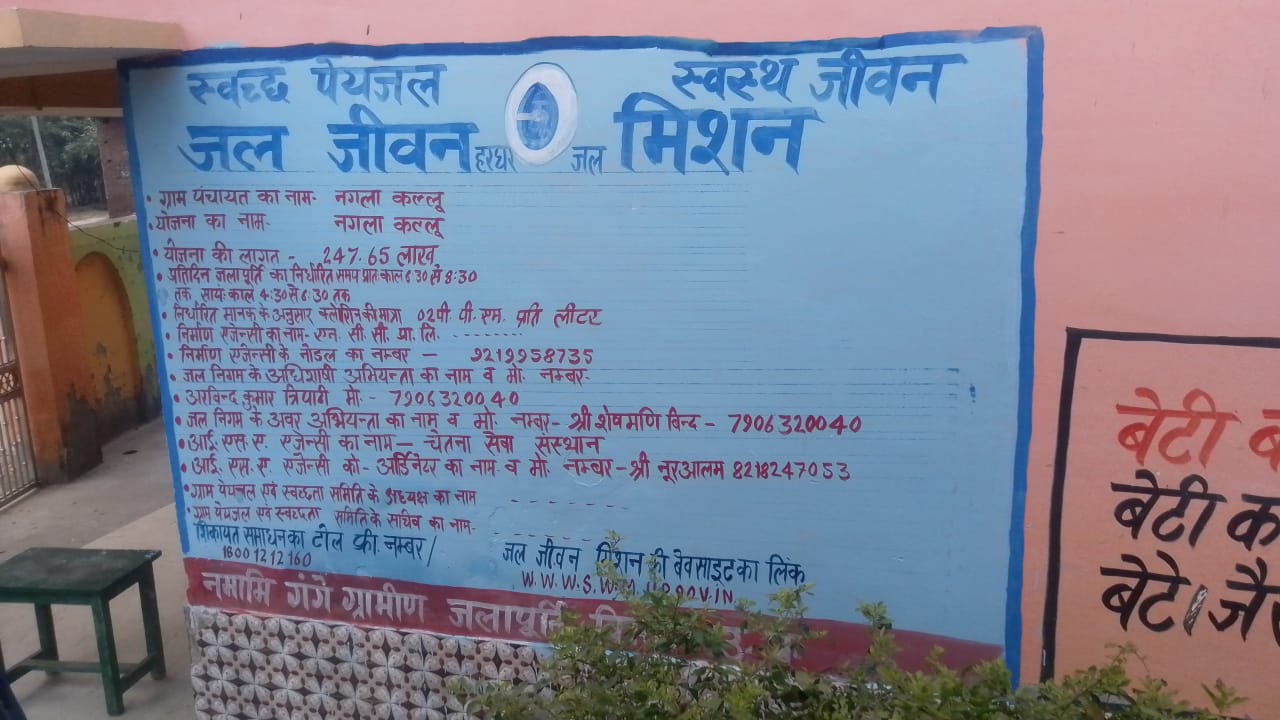 स्वच्छ पेयजल स्वस्थ जीवन
जल जीवन हर घर जल मिशन
• ग्राम पंचायत का नाम- नगला कल्लू
• योजना का नाम- नगला कल्लू
• योजना की लागत - 247.65 लाख
• प्रतिदिन जलापूर्ति का निर्धारित समय प्रातः काल 6:30 से 8:30
तक, सायं: काल 4:30 से 6:30 तक
• निर्धारित मानक के अनुसार क्लोरिन की मात्रा 02 पी. पी. एम. प्रति लीटर
• निर्माण एजेन्सी का नाम- एन. सी. सी. प्रा. लि. - - - - - - -
• निर्माण एजेन्सी के नोडल का नम्बर – 9219958735
• जल निगम के अधिशाषी अभियन्ता का नाम व मो. नम्बर-
• अरविन्द कुमार त्रिपाठी मो. - 7906320040
• जल निगम के अवर अभियन्ता का नाम व मो. नम्बर- श्री शेषमणि बिन्द - 7906320040
• आई. एस. ए. एजेन्सी का नाम – चेतना सेवा संस्थान
• आई. एस. ए. एजेन्सी को- आर्डिनेटर का नाम व मो. नम्बर- श्री नूरआलम 8218247053
• ग्राम पेयजल एवं स्वच्छता समिति के अध्यक्ष का नाम - - - - - -
• ग्राम पेयजल एवं स्वच्छता समिति के सचिव का नाम-
शिकायत समाधन का टोल फ्री. नम्बर / जल जीवन मिशन की वेवसाइट का लिंक
18001212160 W.W.W.S.W
नमामि गंगे ग्रामीण जलापूर्ति
बेटी
बेटी
बेटे